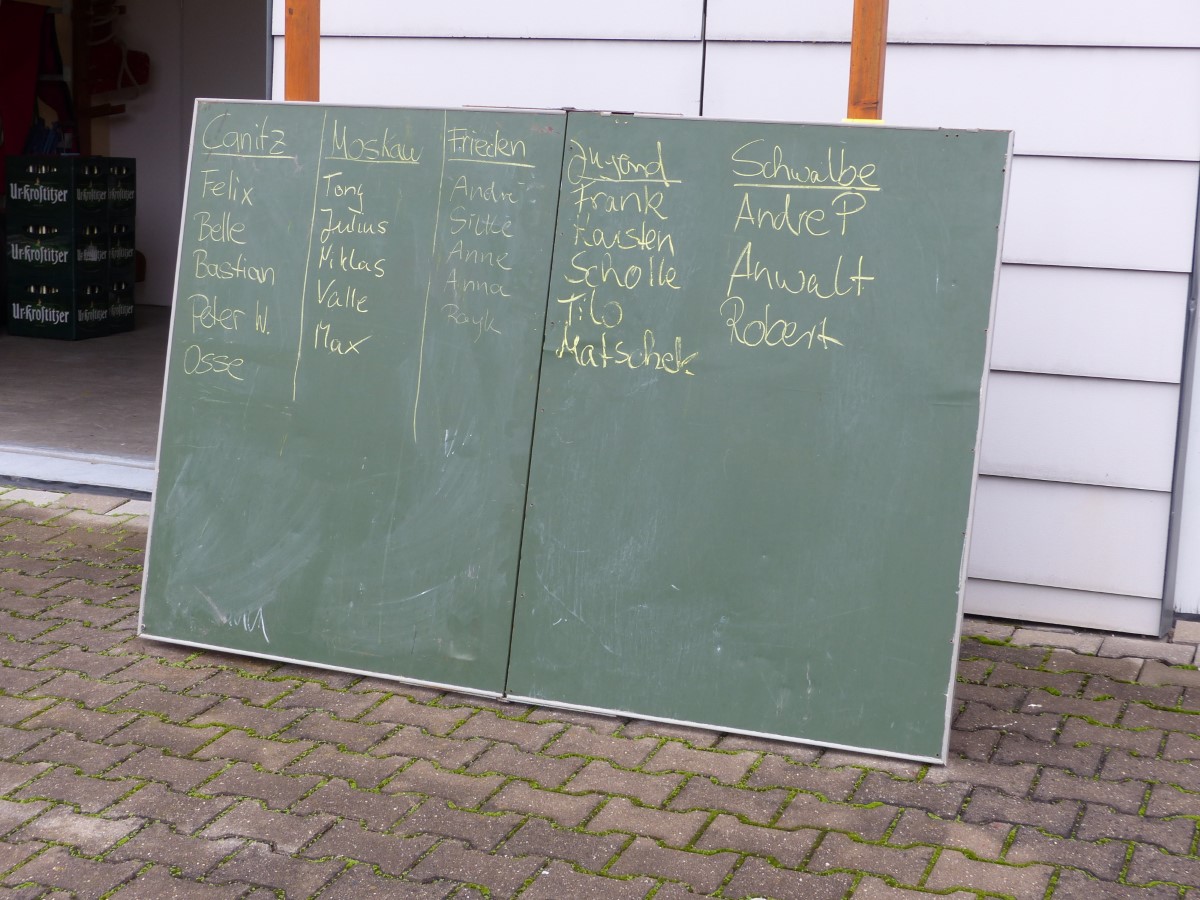 Canitz
Felix
Belle
Bastian
Peter W.
Osse
Moskau
Tony
Julius
Niklas
Valle
Max
Frieden
André
Silke
Anne
Anna
Jugend
Frank
Karsten
Scholle
Tilo
Matschek
Schwalbe
Andre P
Anwalt
Robert
Ur-Krostitzer
Ur-Krostitzer
Ur-Krostitzer
Ur-Krostitzer
Ur-Krostitzer
Ur-Krostitzer